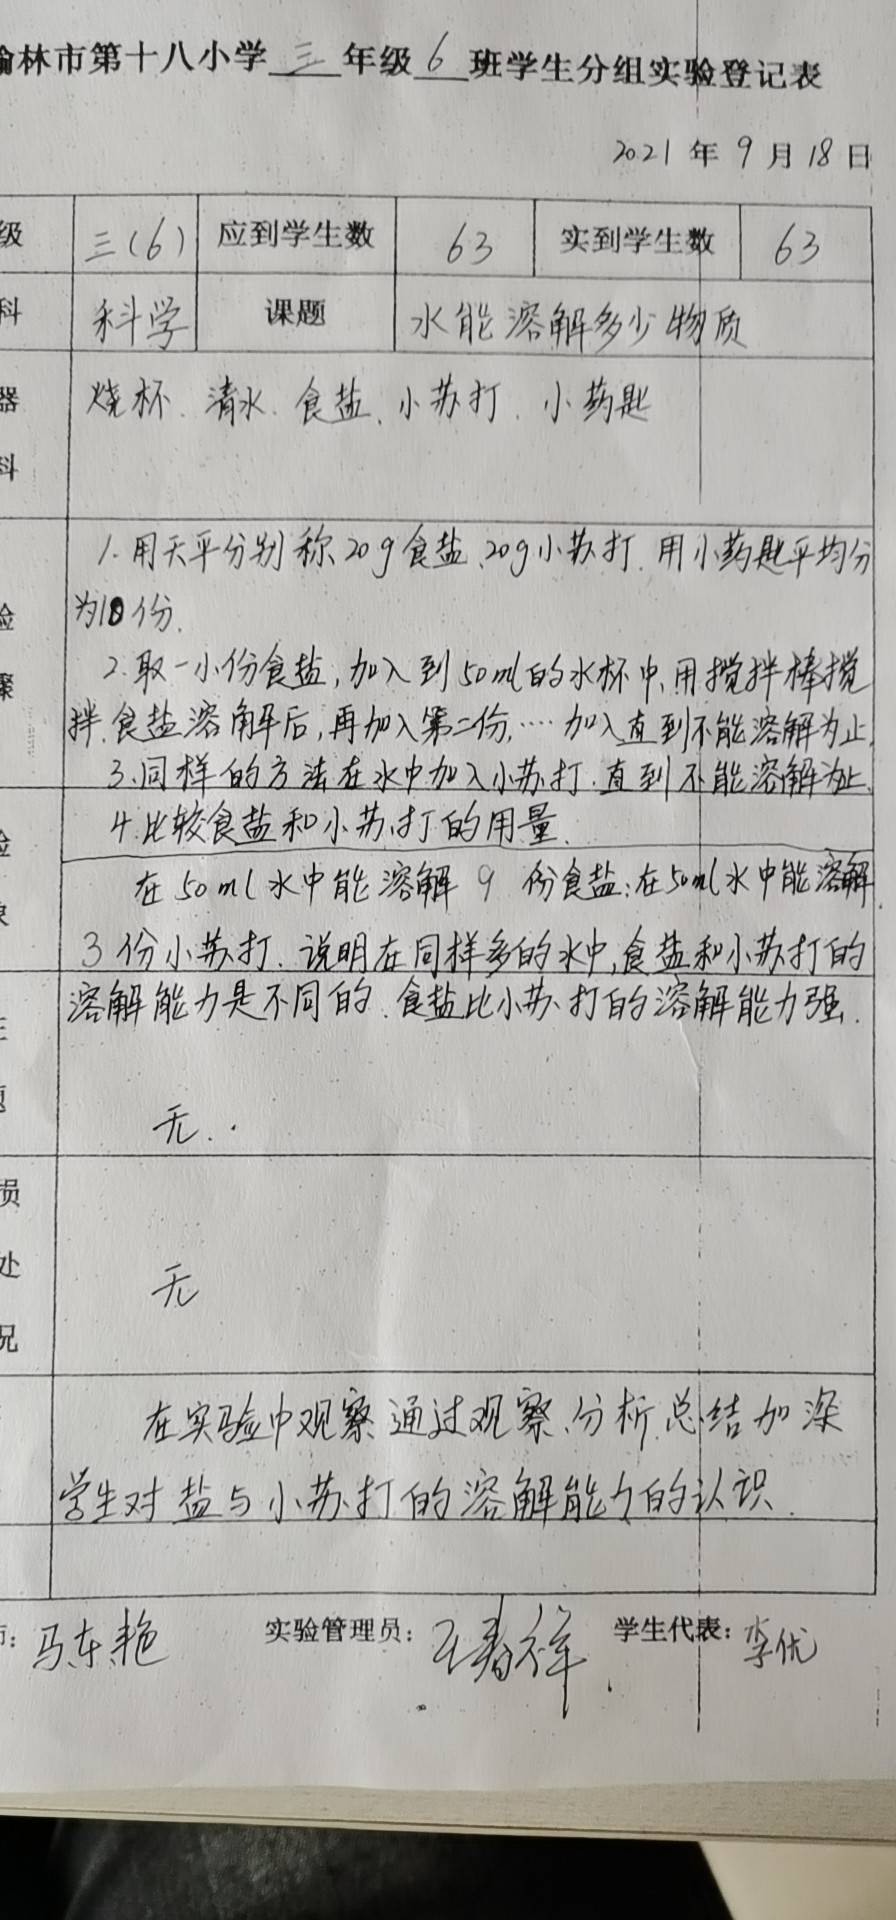 榆林市第十八小学三年级6班学生分组实验登记表
2021年9月18日
级 三(6) 应到学生数 63 实到学生数 63
科 科学 课题 水能溶解多少物质
器 烧杯、清水、食盐、小苏打、小药匙
料
1.用天平分别称20g食盐、20g小苏打.用小药匙平均分
验 为10份.
2.取一小份食盐,加入到50ml的水杯中,用搅拌棒搅
骤 拌.食盐溶解后,再加入第二份,……加入直到不能溶解为止.
3.同样的方法在水中加入小苏打.直到不能溶解为止.
验 4.比较食盐和小苏打的用量.
象 在50ml水中能溶解9份食盐;在50ml水中能溶解
3份小苏打.说明在同样多的水中,食盐和小苏打的
溶解能力是不同的.食盐比小苏打的溶解能力强.
题 无.
损
处 无
况
在实验中观察,通过观察、分析、总结加深
学生对盐与小苏打的溶解能力的认识.
师:马东艳 实验管理员:王春祥 学生代表:李优